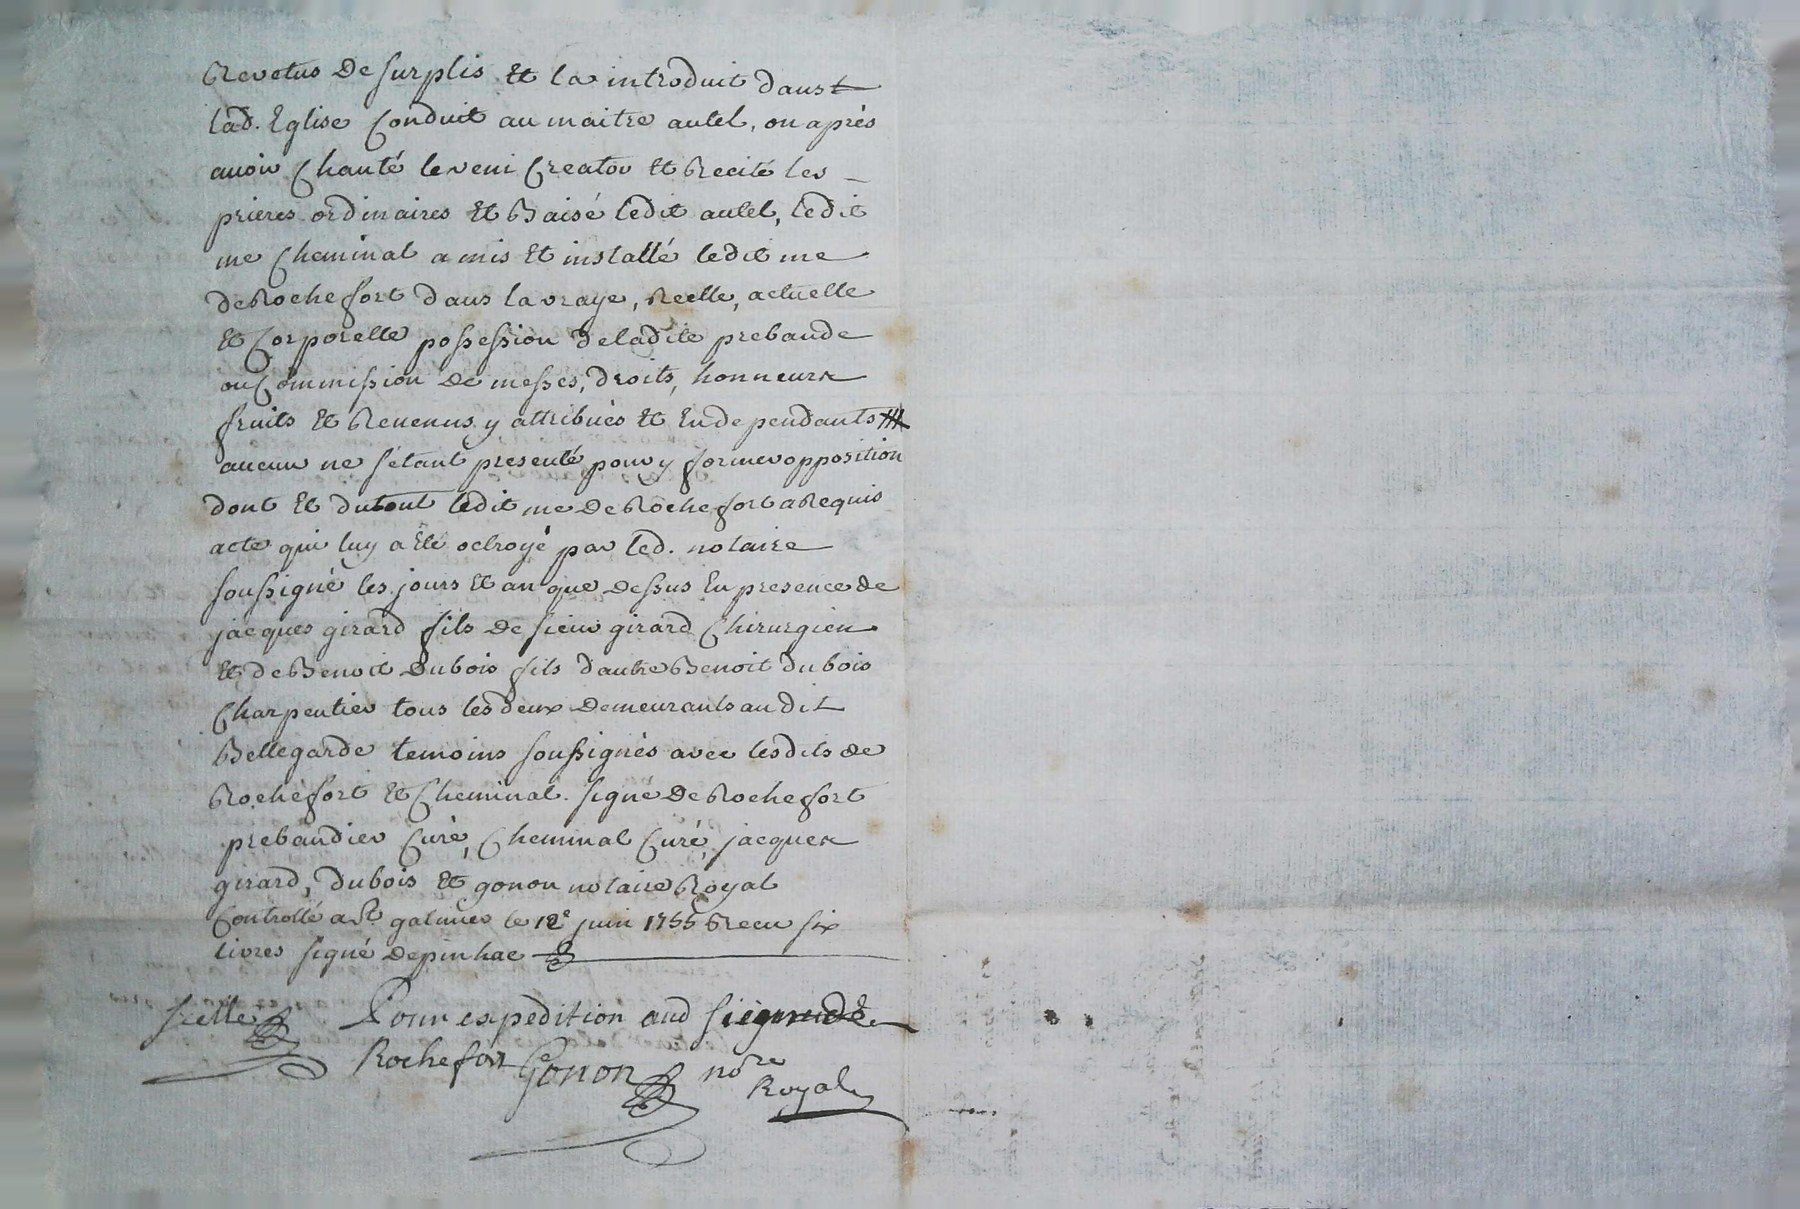 Revetus de surplis et la introduit dans
lad. Eglise conduit au maitre autel, ou après
avoir Chanté le veni Creator et Recité les
prieres ordinaires et Baisé ledit autel, ledit
me Cheminal a mis et installé ledit me
de Rochefort dans la vraye, Reelle, actuelle
et Corporelle possession de ladite prebande
ou Commission de messes, droits, honneurs
fruits et Revenus y attribués et en dependants
aucun ne s'étant presenté pour y former opposition
dont et du tout ledit me de Rochefort a Requis
acte qui luy a été octroyé par led. notaire
soussigné les jours et an que dessus en presence de
jacques girard fils de sieur girard Chirurgien
et de Benoit dubois fils d'autre Benoit dubois
Charpentier tous les deux demeurants audit
Bellegarde temoins soussignés avec lesdits de
Rochefort et Cheminal. signé de Rochefort
prebandier Curé, Cheminal Curé, jacques
girard, dubois et gonon notaire Royal
Controllé a St galmier le 12e juin 1755 Recu six
livres signé depinhac
scellé Pour expedition aud sieur de
Rochefort Gonon nore
Royal